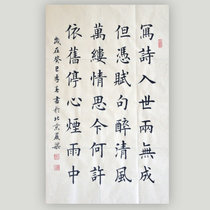 寫詩入世兩無成
但憑賦句醉清風
萬縷情思今何許
依舊停心煙雨中
歲在癸巳書於北京